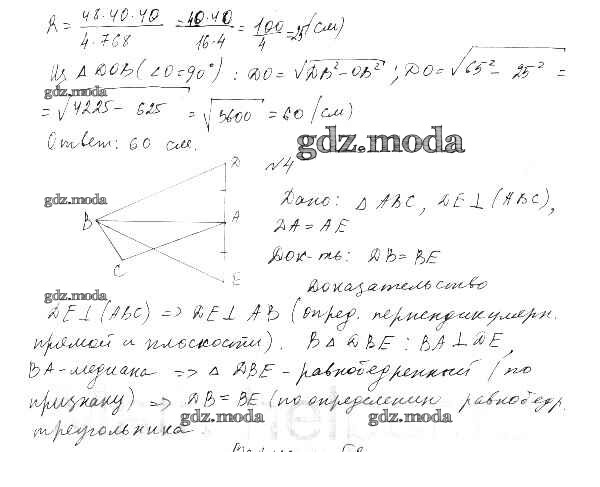 R = 48·40·40 / 4·768 = 40·40 / 16·4 = 100 / 4 = 25 (см)
Из Δ DOB (∠O = 90°) : DO = √DB² − OB² ; DO = √65² − 25² =
gdz.moda
= √4225 − 625 = √3600 = 60 (см)
Ответ: 60 см.
gdz.moda
№4
D
gdz.moda
Дано: Δ ABC, DE ⊥ (ABC),
B A
DA = AE
Док-ть: DB = BE
C
E
Доказательство
gdz.moda
DE ⊥ (ABC) => DE ⊥ AB (опред. перпендикулярн.
прямой и плоскости). В Δ DBE : BA ⊥ DE,
BA - медиана => Δ DBE - равнобедренный (по
признаку) => DB = BE (по определению равнобедр.
gdz.moda gdz.moda
треугольника